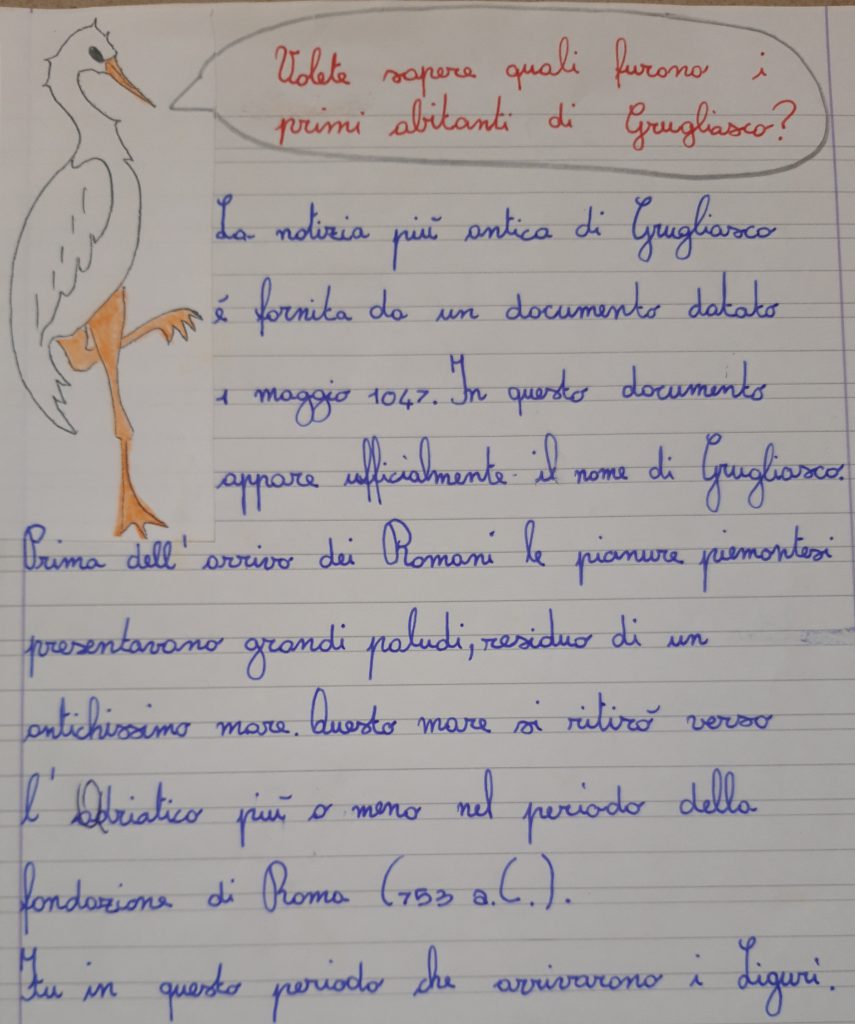 Volete sapere quali furono i
primi abitanti di Grugliasco?
La notizia più antica di Grugliasco
é fornita da un documento datato
1 maggio 1047. In questo documento
appare ufficialmente il nome di Grugliasco.
Prima dell'arrivo dei Romani le pianure piemontesi
presentavano grandi paludi, residuo di un
antichissimo mare. Questo mare si ritirò verso
l'Adriatico più o meno nel periodo della
fondazione di Roma (753 a.C.).
Fu in questo periodo che arrivarono i Liguri.